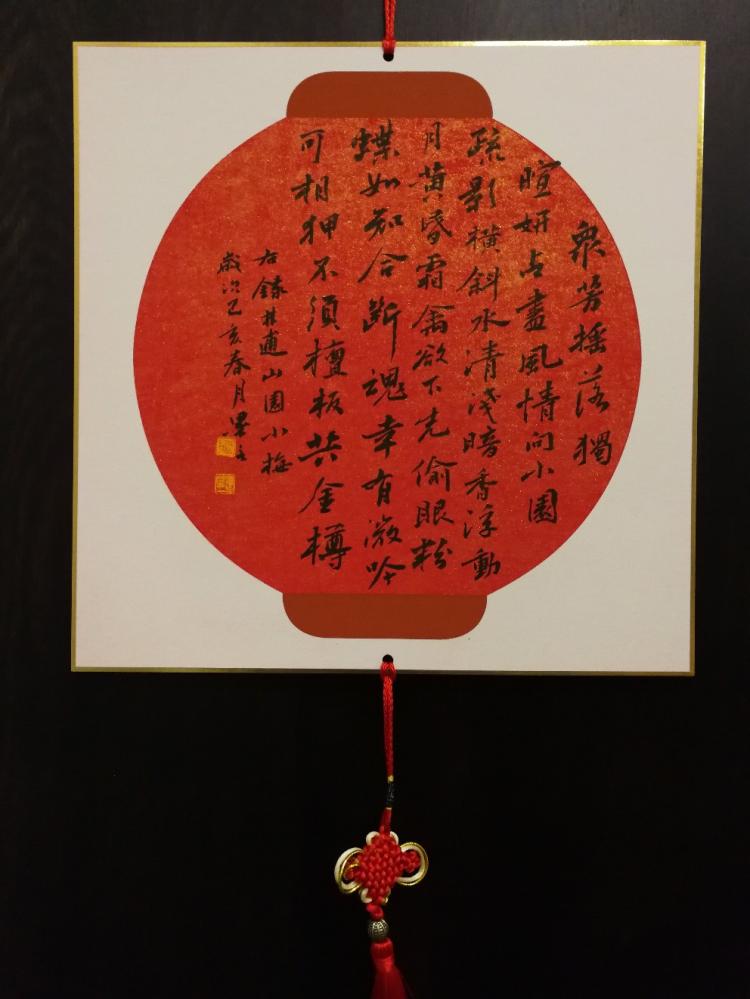 衆芳摇落獨
暄妍占盡風情向小園
疏影橫斜水清淺暗香浮動
月黄昏霜禽欲下先偷眼粉
蝶如知合斷魂幸有微吟
可相狎不須檀板共金樽
右錄林逋山園小梅
歲次己亥春月